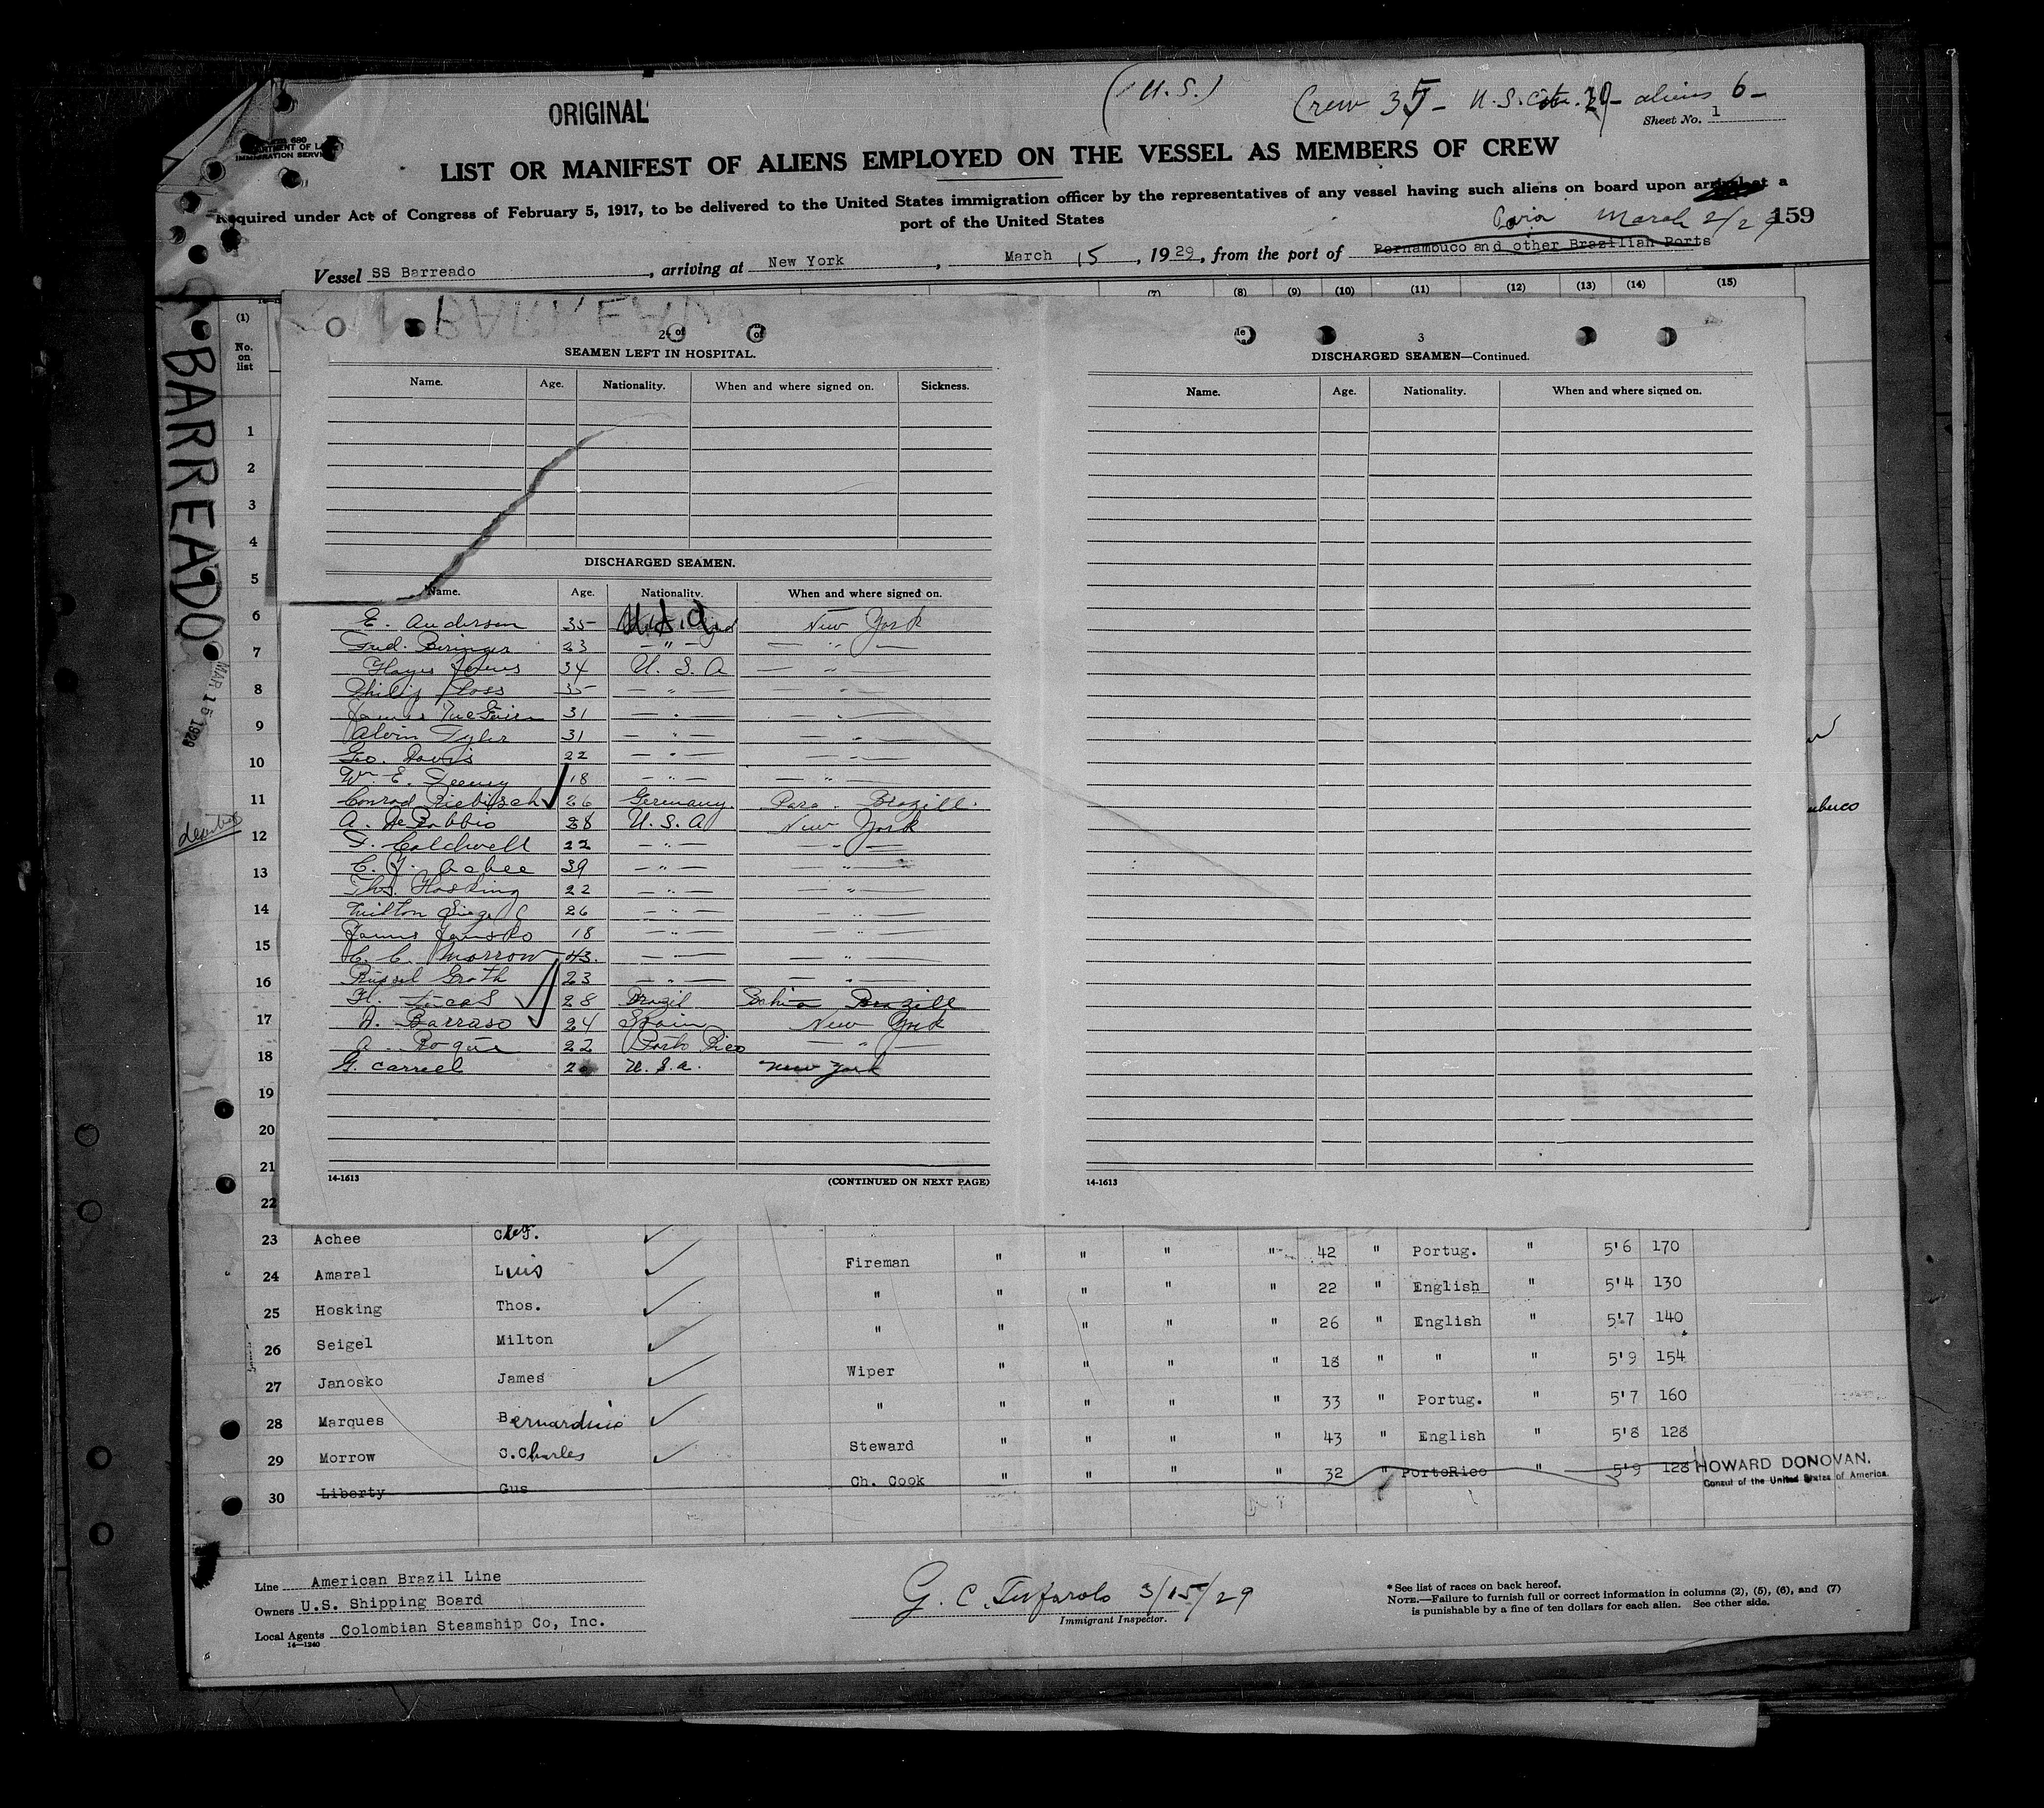 ORIGINAL
(U.S.)
Crew 35 - U.S. Cit. 29 - aliens 6 -
Sheet No. 1
IMMIGRATION SERVICE
LIST OR MANIFEST OF ALIENS EMPLOYED ON THE VESSEL AS MEMBERS OF CREW
Required under Act of Congress of February 5, 1917, to be delivered to the United States immigration officer by the representatives of any vessel having such aliens on board upon arrival at a
port of the United States
Para March 2/29 159
Vessel SS Barreado, arriving at New York, March 15, 1929, from the port of Pernambuco and other Brazilian Ports
(1) (7) (8) (9) (10) (11) (12) (13) (14) (15)
No. on list
BARREADO
MAR 15 1929
2
SEAMEN LEFT IN HOSPITAL.
Name. Age. Nationality. When and where signed on. Sickness.
DISCHARGED SEAMEN.
Name. Age. Nationality. When and where signed on.
E. Anderson 35 U.S.A. New York
Fred. Beringer 23 " "
Hayes 34 U.S.A "
Philip Ross 35 " "
James 31 " "
Alvin Tyler 31 " "
Geo. Davis 22 " "
Wm. E. Feeney 18 " "
Conrad Riebitsch 26 Germany. Para. Brazill.
A. DeRobbio 28 U.S.A New York
F. Caldwell 22 " "
C. F. Achee 39 " "
Thos. Hosking 22 " "
Milton Siegel 26 " "
James Janosko 18 " "
C. C. Morrow 43. " "
Russel Groth 23 " "
H. Lucas 28 Brazil Bahia Brazill
A. Barraso 24 Spain New York
A. Roque 22 Porto Rico "
G. Carreel 2 U.S.A. New York
14-1613 (CONTINUED ON NEXT PAGE)
3
DISCHARGED SEAMEN—Continued.
Name. Age. Nationality. When and where signed on.
14-1613
1
2
3
4
5
6
7
8
9
10
11
12
13
14
15
16
17
18
19
20
21
22
23 Achee
24 Amaral Luis Fireman " " " " 42 " Portug. " 5'6 170
25 Hosking Thos. " " " " " 22 " English " 5'4 130
26 Seigel Milton " " " " " 26 " English " 5'7 140
27 Janosko James Wiper " " " " 18 " " " 5'9 154
28 Marques Bernardino " " " " " 33 " Portug. " 5'7 160
29 Morrow C.Charles Steward " " " " 43 " English " 5'8 128
30 Liberty Gus Ch. Cook " " " " 32 " PortoRico " 5'9 128
HOWARD DONOVAN.
Consul of the United States of America.
Line American Brazil Line
Owners U.S. Shipping Board
Local Agents Colombian Steamship Co, Inc.
14-1240
G. C. Tufarolo 3/15/29
Immigrant Inspector.
* See list of races on back hereof.
NOTE.—Failure to furnish full or correct information in columns (2), (5), (6), and (7)
is punishable by a fine of ten dollars for each alien. See other side.